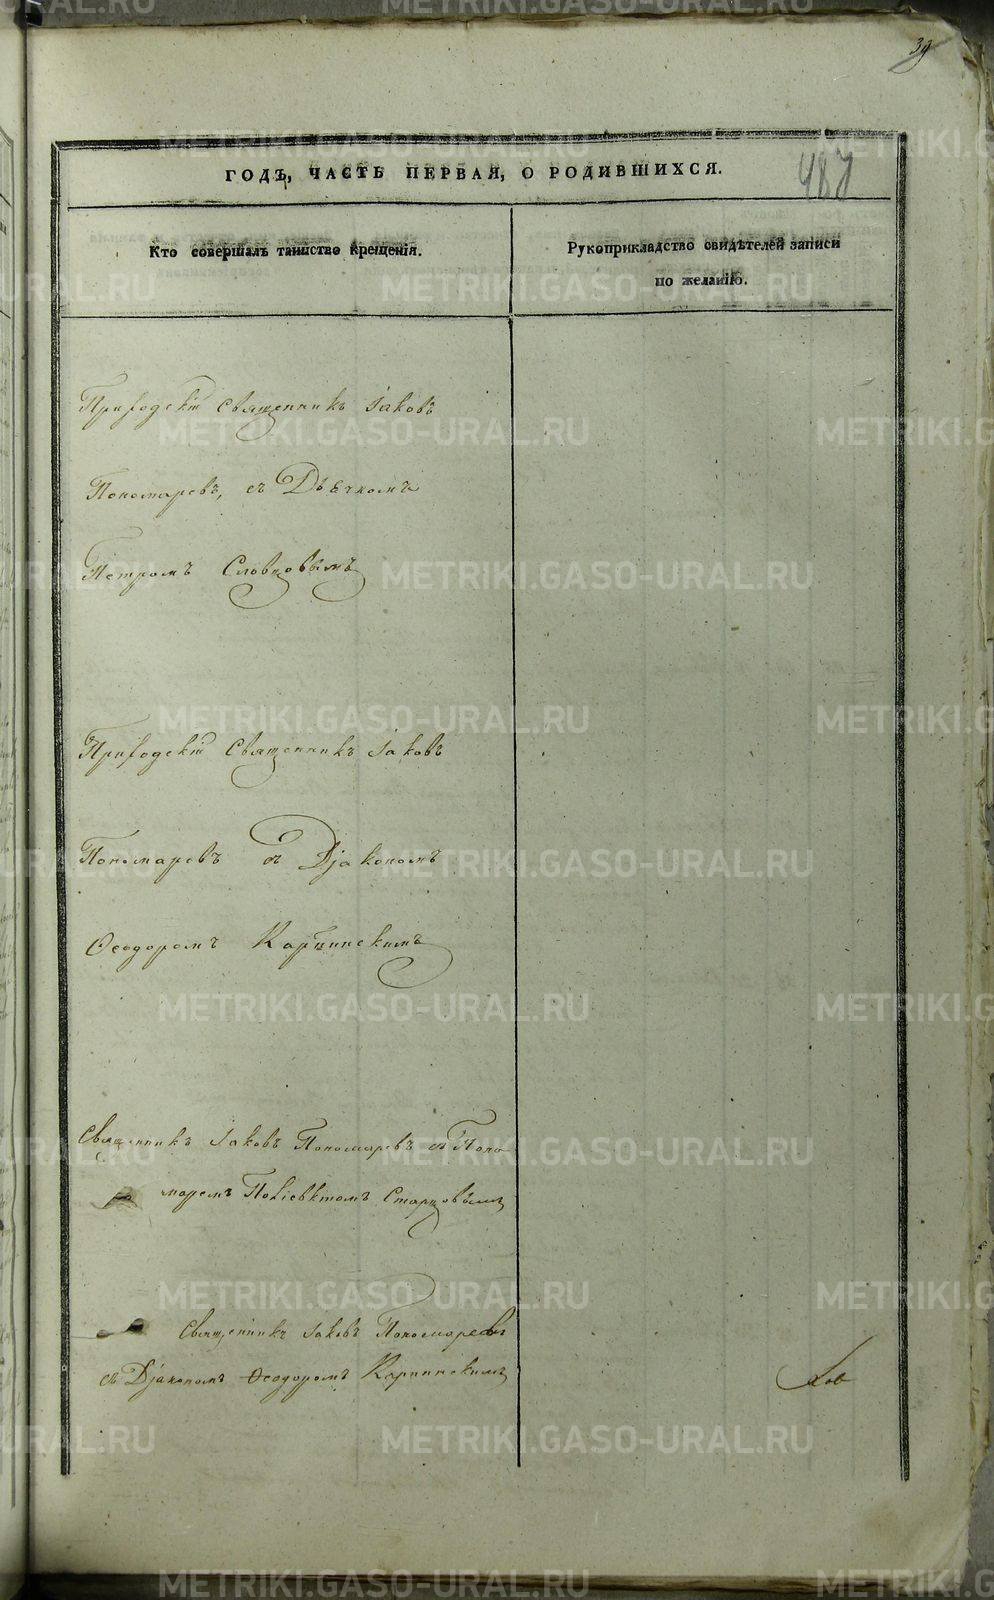 39
487
ГОДЪ, ЧАСТЬ ПЕРВАЯ, О РОДИВШИХСЯ.
Кто совершалъ таинство крещенія.
Рукоприкладство свидѣтелей записи
по желанію.
Священникъ Іаковъ
Пономаревъ, съ Дьячкомъ
Петромъ Словцовымъ
Священникъ Іаковъ
Пономаревъ съ Діакономъ
Ѳеодоромъ Карпинскимъ
Священникъ Іаковъ Пономаревъ съ Поно
маремъ Поліевктомъ Старцовымъ
Священникъ Іаковъ Пономаревъ
съ Діакономъ Ѳеодоромъ Карпинскимъ
METRIKI.GASO-URAL.RU